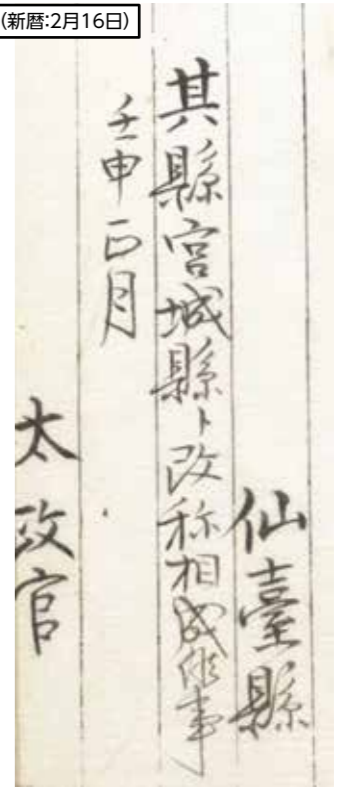 (新暦:2月16日)
仙臺縣
其縣宮城縣ト改称相成候事
壬申正月
太政官